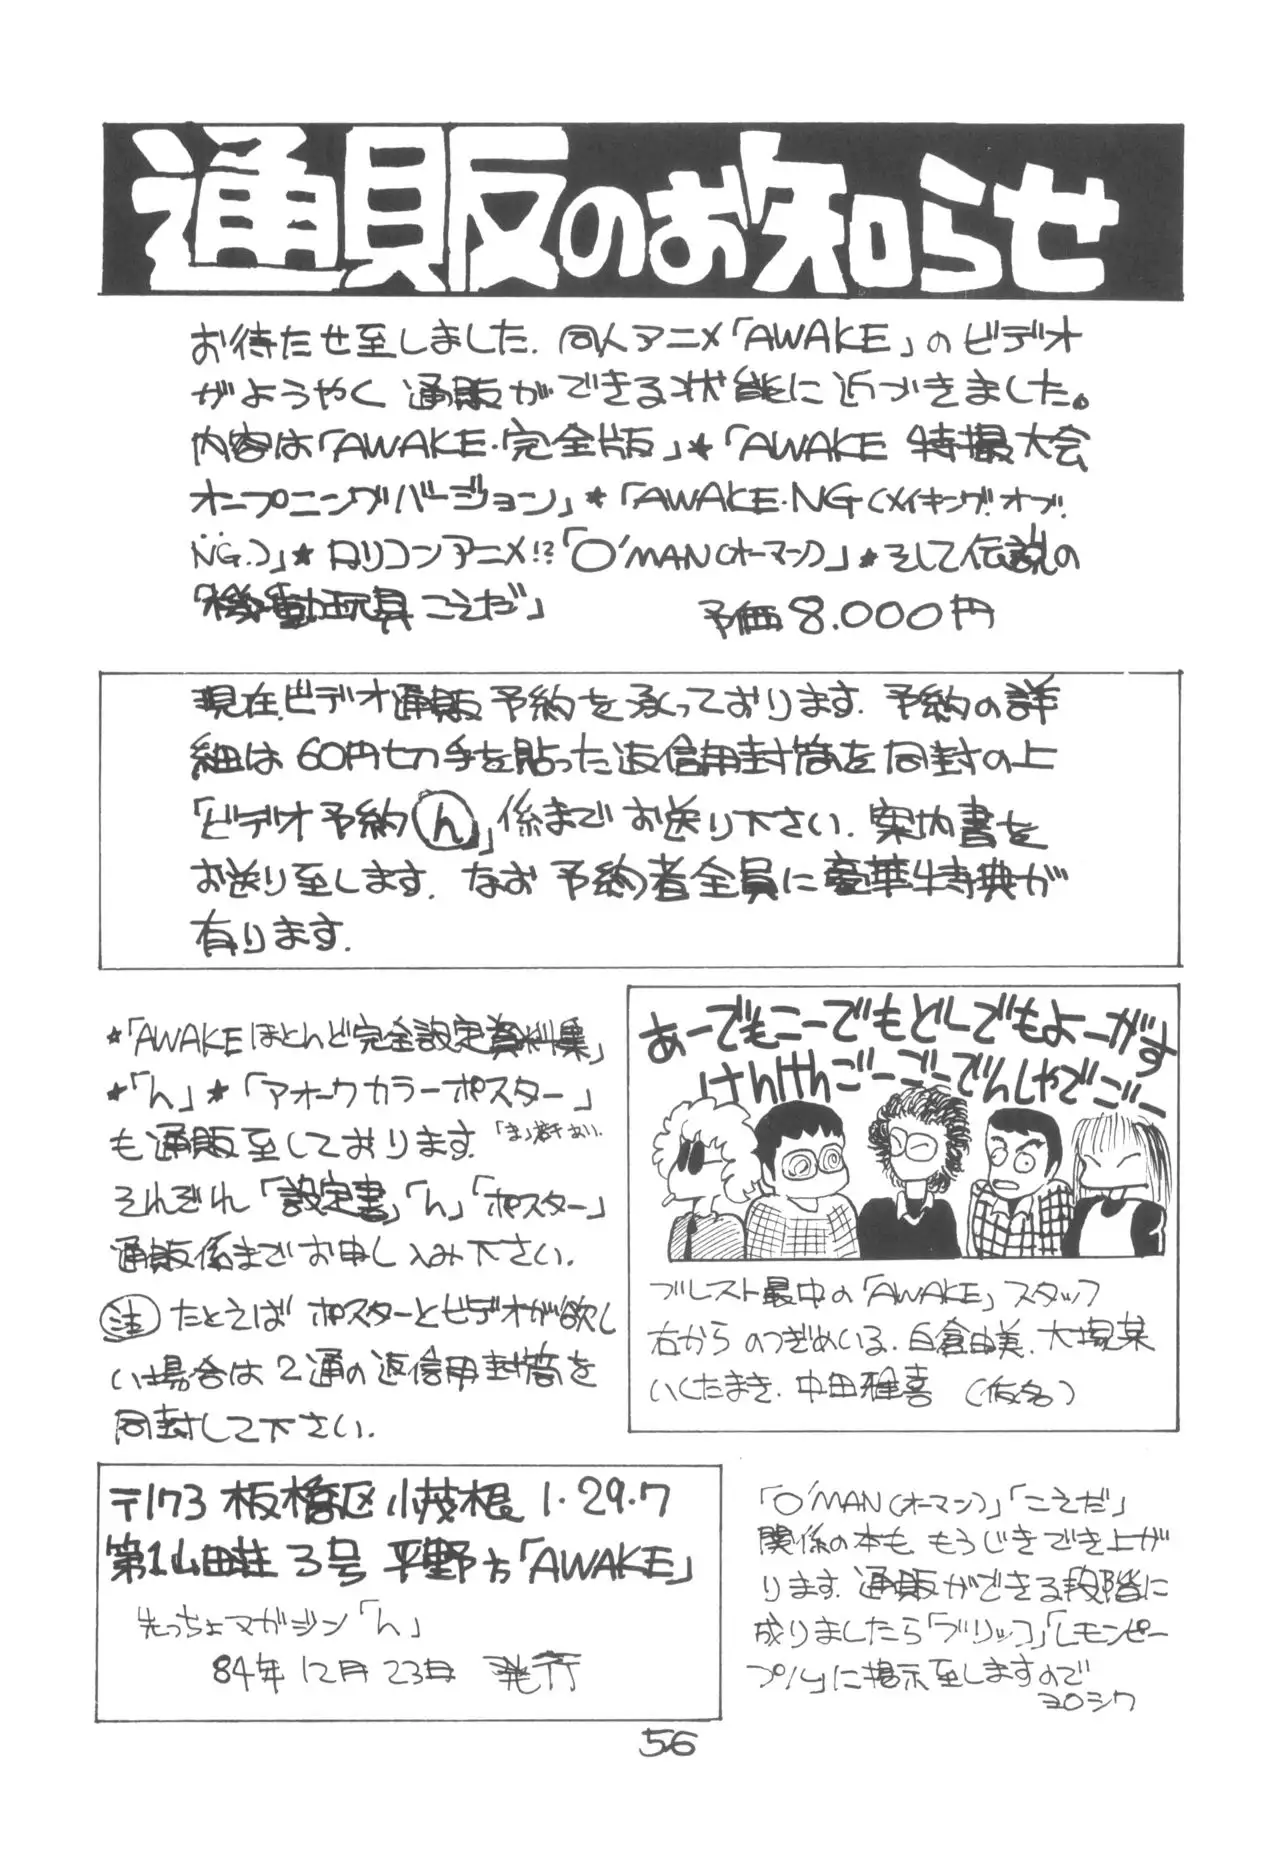 通販のお知らせ
お待たせ至しました. 同人アニメ「AWAKE」のビデオ
がようやく 通販ができる状態に近づきました。
内容は「AWAKE・完全版」★「AWAKE 特撮大会
オープニングバージョン」★「AWAKE・NG(メイキング・オブ・
NG.)」★ロリコンアニメ!?「O'MAN(オーマン)」★そして伝説の
「機動玩具こえだ」 予価8.000円
現在.ビデオ通販予約を承っております. 予約の詳
細は60円切手を貼った返信用封筒を同封の上
「ビデオ予約ん」係までお送り下さい. 案内書を
お送り至します. なお予約者全員に豪華特典が
有ります.
★「AWAKEほとんど完全設定資料集」
★「ん」★「アオーウカラーポスター」
も通販至しております.
それぞれ「設定書」「ん」「ポスター」
通販係までお申し込み下さい.
注 たとえば ポスターとビデオが欲し
い場合は2通の返信用封筒を
同封して下さい.
あーでもこーでもどーでもよーがす
けんけんごーごーでんしゃでごー
ブレスト最中の「AWAKE」スタッフ
右から のつぎめいる.白倉由美.大場某
いくたまき.中田雅喜 (仮名)
〒173 板橋区小茂根1・29・7
第1山田荘3号 平野方「AWAKE」
先っちょマガジン「ん」
84年12月23日 発行
「O'MAN(オーマン)」「こえだ」
関係の本も もうじきでき上が
ります. 通販ができる段階に
成りましたら「ブリッコ」「レモンピー
プル」に掲示至しますので
ヨロシク
56